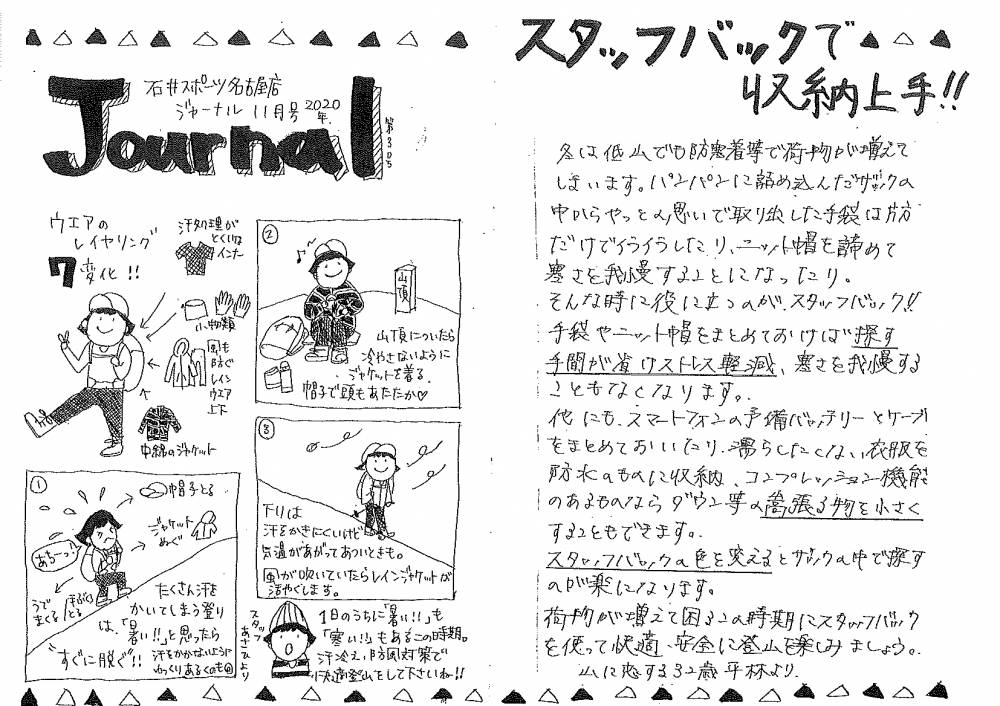 石井スポーツ名古屋店
ジャーナル 11月号 2020年
Journal
第305
ウエアの
レイヤリング
7変化!!
汗処理が
とくいな
インナー
小物類
風も
防ぐ
レイン
ウエア
上下
中綿のジャケット
①
帽子とる
ジャケット
ぬぐ
あちーっ!
うで
まくる
手ぶくろ
とる
たくさん汗を
かいてしまう登り
は、「暑い!!」と思ったら
すぐに脱ぐ!!
汗をかかないように
ゆっくりあるくのも
②
山頂
山頂についたら
冷やさないように
ジャケットを着る。
帽子で頭もあたたか♡
③
下りは
汗をかきにくいけど
気温があがってあついときも。
風が吹いていたらレインジャケットが
活やくします。
スタッフ
あさひより
1日のうちに「暑い!!」も
「寒い!!」もあるこの時期。
汗冷え、防風対策で
快適登山をして下さいね!!
スタッフバックで
収納上手!!
冬は低山でも防寒着等で荷物が増えて
しまいます。パンパンに詰め込んだザックの
中からやっとの思いで取り出した手袋は片方
だけでイライラしたり、ニット帽を諦めて
寒さを我慢することになったり。
そんな時に役に立つのが、スタッフバック!!
手袋やニット帽をまとめておけば探す
手間が省けストレス軽減、寒さを我慢する
こともなくなります。
他にも、スマートフォンの予備バッテリーとケーブ
をまとめておいたり、濡らしたくない衣服を
防水のものに収納、コンプレッション機能
のあるものなら ダウン等の嵩張る物を小さく
することもできます。
スタッフバックの色を変えるとザックの中で探す
のが楽になります。
荷物が増えて困るこの時期にスタッフバック
を使って快適、安全に登山を楽しみましょう。
山に恋する32歳 平林より.